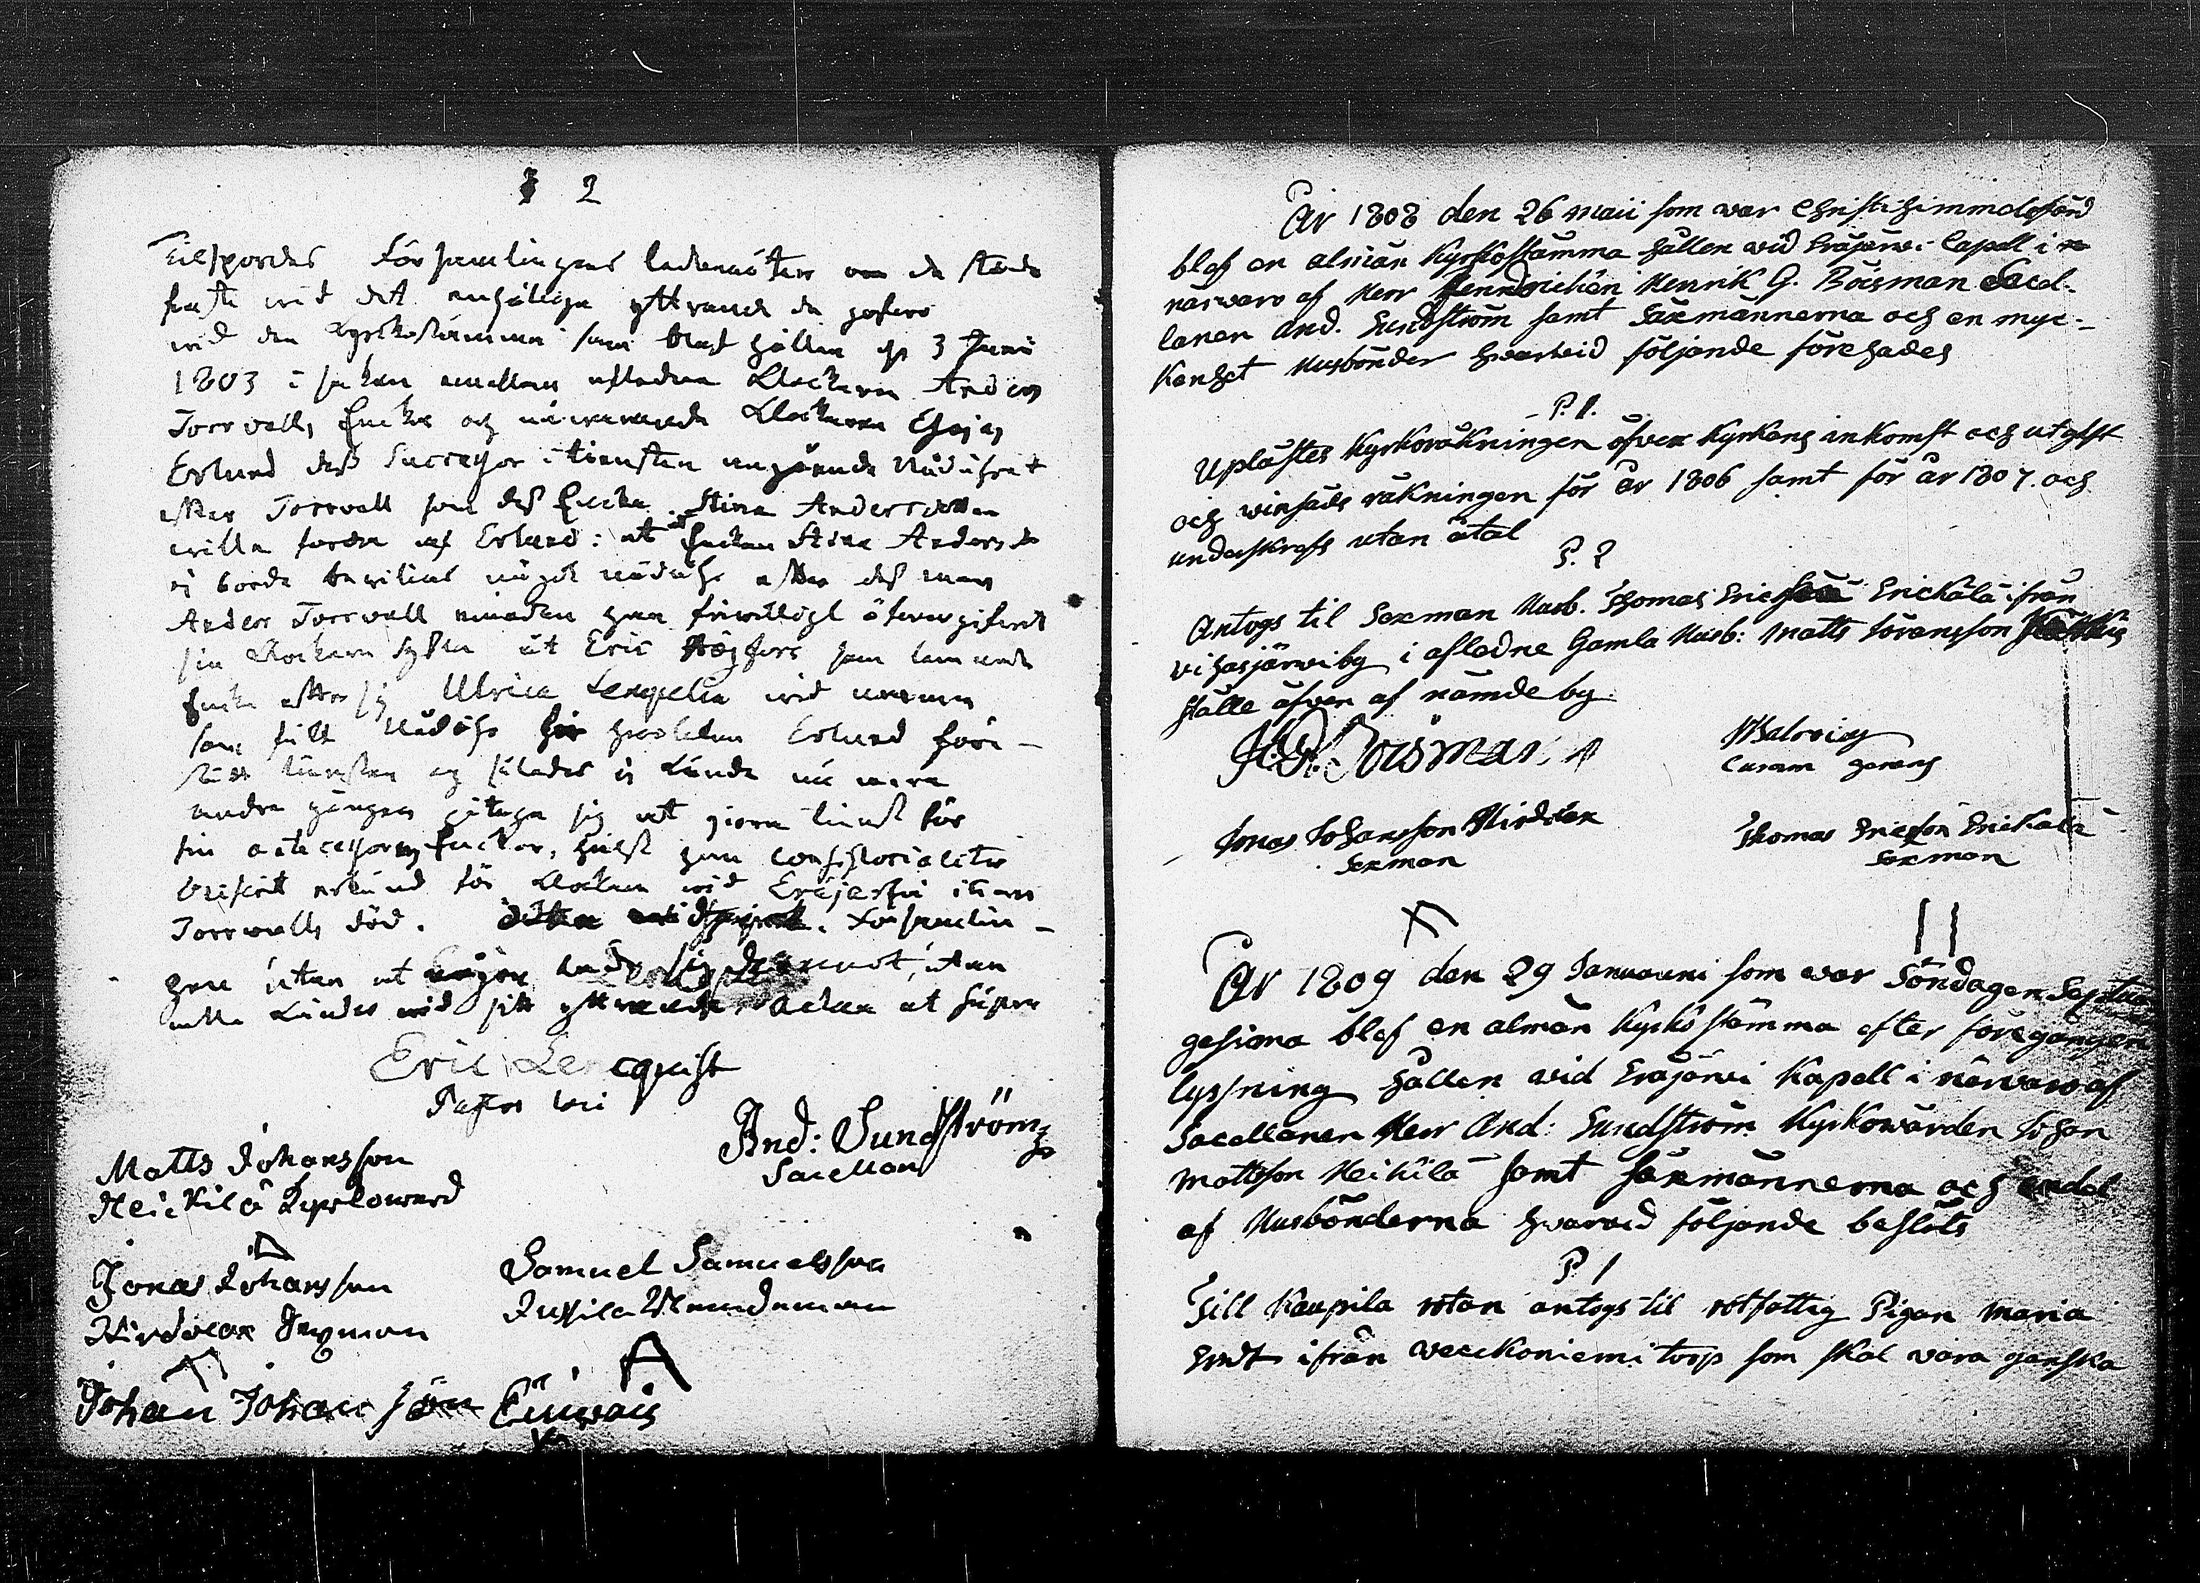 § 2
Tilspordes Församlingens ledamöter om de stode
fast wid det enhälliga yttrande de gofwo
wid den Kyrckostämma som blef hållen d. 3 Junii
1803 i saken emellan afledne Klockaren Anders
Torrvalls Encka och närvarande Klockaren Esajas
Erlund dess Successor i tiensten angående Nådåhret
efter Torrvall som dess Encka Stina Andersdotter
wille fordra af Erlund: at Enckan Stina Andersdr
ej borde bewiljas något nådåhr efter dess man
Anders Torrvall emedan han friwilligt öfwergifwit
sin Klockare syssla åt Eric Högfors som lemnade
Encka efter sig Ulrica Lengelia wid
som fült Nådåhr hwarunder Erlund före-
stått tiensten och således ej kunde nu mera
andra gången påtaga sig at giöra tienst för
sin antecessors Enckor, hälst han consistorialiter
blifwit erkänd för Klockare wid Eräjerfwi innan
Torrwalls död. Församlin-
gen utan at någon utan
alla kändes wid sitt yttrande saken at
Eric Lencquist
Pastor loci
And: Sundström
Sacellan
Matts Johansson
Heickilä Kyrckoward
Jonas Johansson
Hirdolax Sexman
Samuel Samuelsson
Jussila Nämndeman
Johan Johansson

År 1808 den 26 Maii som war Christi himmelsfärd
blef en almän Kyrkostämma hållen wid Eräjärwi Capell i
närwaro af Herr Henrik G. Boisman Sacel-
lanen And. Sundström samt Säxmännerna och en myc-
kenhet Husbönder hwarwid följande förehades
P. 1.
Uplästes Kyrkoräkningen öfver Kyrkans inkomst och utgift
och winsäds räkningen för år 1806 samt för år 1807. och
underskrefs utan åtal
P. 2
Antogs til Sexman Husb. Thomas Ericsson Erickälä ifrån
vihasjärwi by i afledne Gamla Husb: Matts Göransson
ställe äfven af nämde by
H. G. Boisman
Curam gerens
Jonas Johansson
Sexman
Thomas Ericsson Erickälä
Sexman
År 1809 den 29 Januarii som war Söndagen Septua
gesima blef en almän Kyrko stämma efter föregången
lyssning hållen wid Eräjärwi Kapell i närwaro af
Sacellanen Herr And: Sundström Kyrkowärden Johan
Mattsson Heikilä samt säxmännerna och endel
af Husbönderna hwarwid följande beslöts
P 1
Till Kaupila rotan antogs til rotfattig Pigan Maria
ifrån weeckoniemi torp som skal wara ganska